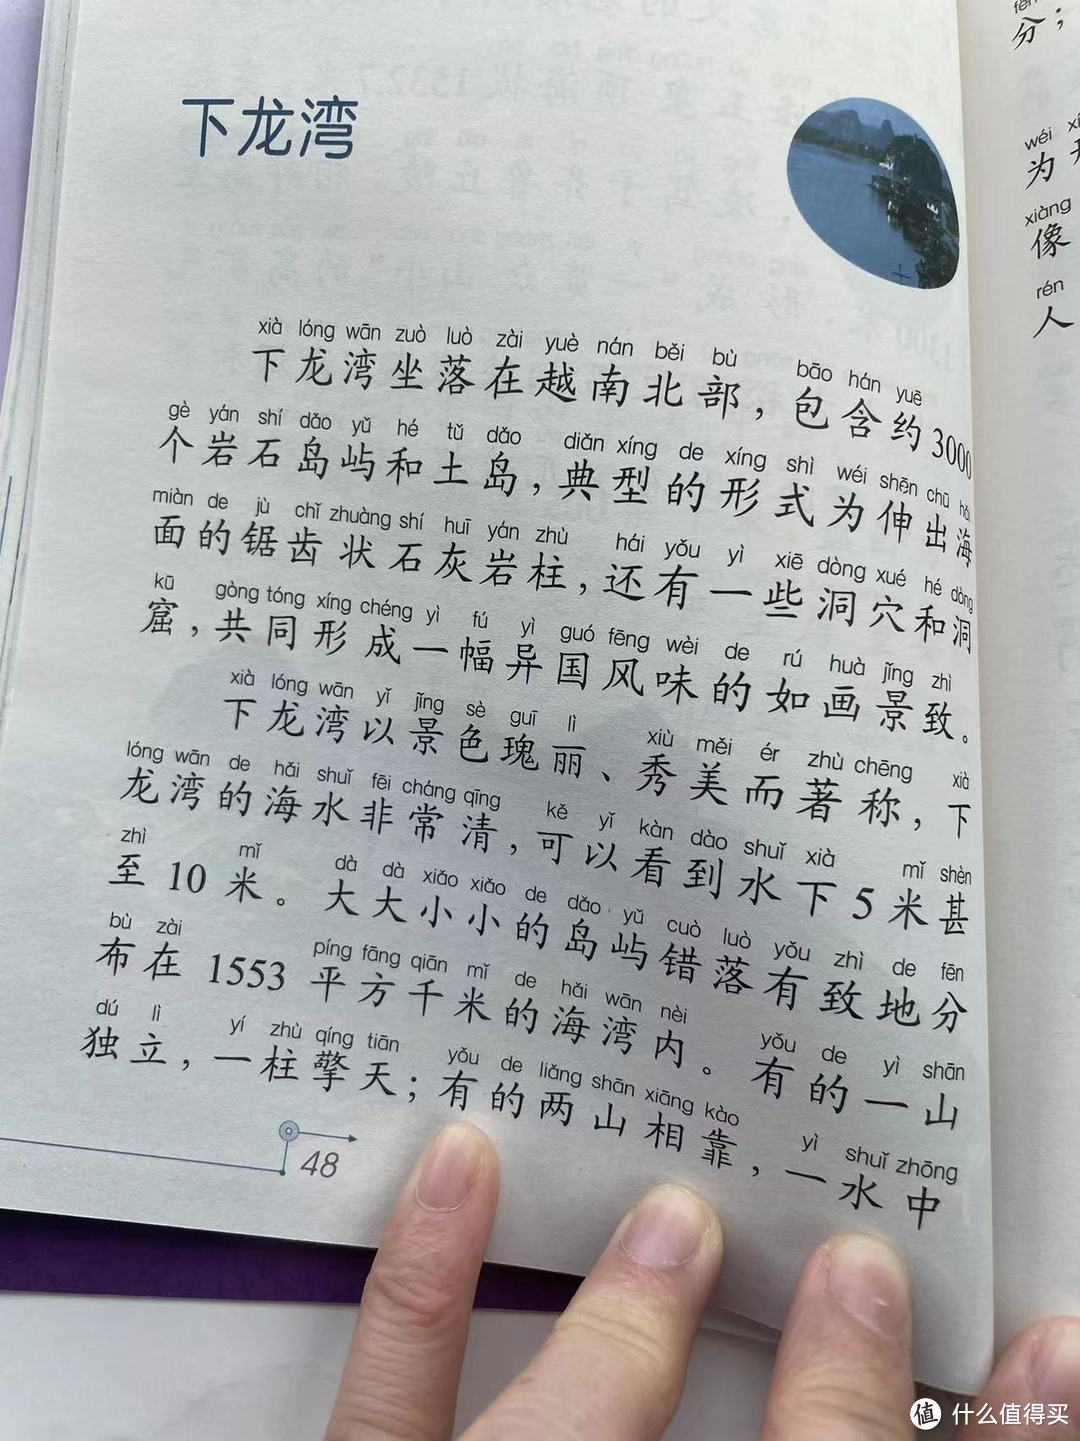 下龙湾
xià lóng wān zuò luò zài yuè nán běi bù bāo hán yuē
下龙湾坐落在越南北部，包含约3000
gè yán shí dǎo yǔ hé tǔ dǎo diǎn xíng de xíng shì wéi shēn chū hǎi
个岩石岛屿和土岛，典型的形式为伸出海
miàn de jù chǐ zhuàng shí huī yán zhù hái yǒu yì xiē dòng xué hé dòng
面的锯齿状石灰岩柱，还有一些洞穴和洞
kū gòng tóng xíng chéng yì fú yì guó fēng wèi de rú huà jǐng zhì
窟，共同形成一幅异国风味的如画景致。
xià lóng wān yǐ jǐng sè guī lì xiù měi ér zhù chēng xià
下龙湾以景色瑰丽、秀美而著称，下
lóng wān de hǎi shuǐ fēi cháng qīng kě yǐ kàn dào shuǐ xià mǐ shèn
龙湾的海水非常清，可以看到水下5米甚
zhì mǐ dà dà xiǎo xiǎo de dǎo yǔ cuò luò yǒu zhì de fēn
至10米。大大小小的岛屿错落有致地分
bù zài píng fāng qiān mǐ de hǎi wān nèi yǒu de yì shān
布在1553平方千米的海湾内。有的一山
dú lì yí zhù qíng tiān yǒu de liǎng shān xiāng kào yì shuǐ zhōng
独立，一柱擎天；有的两山相靠，一水中
48
fēn
分；
wéi
为
xiàng
像
rén
人
值 什么值得买